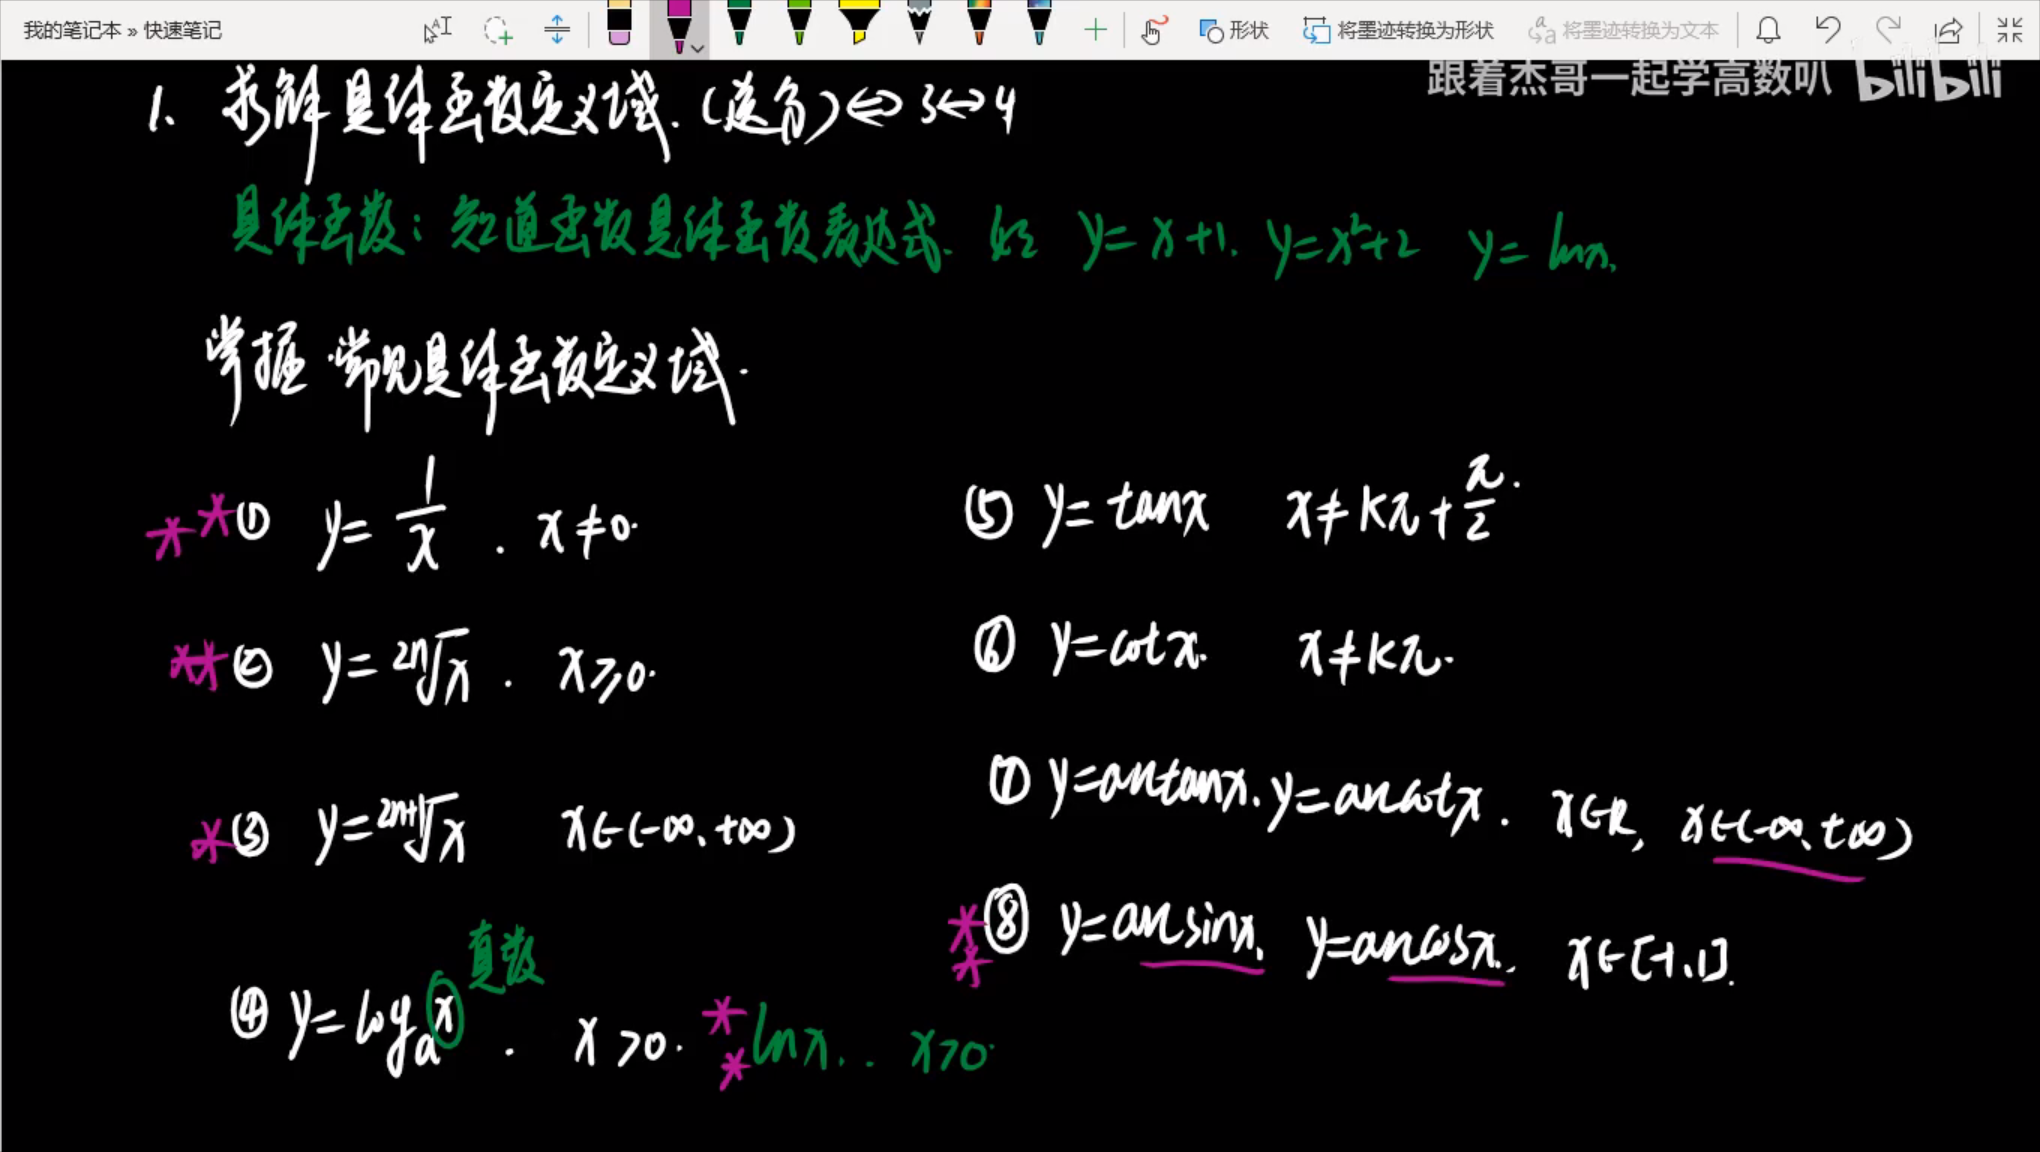 我的笔记本 » 快速笔记
形状
将墨迹转换为形状
将墨迹转换为文本
跟着杰哥一起学高数叭 bilibili
1、求解具体函数定义域.(送分)⇔3↔4
具体函数:知道函数具体函数表达式. 如 y=x+1. y=x²+2 y=lnx.
掌握常见具体函数定义域.
** ① y=1/x . x≠0.
** ② y=²ⁿ√x . x≥0.
* ③ y=²ⁿ⁺¹√x x∈(-∞,+∞)
④ y=logₐx 真数 . x>0. ** lnx. . x>0.
⑤ y=tanx x≠kπ+π/2.
⑥ y=cotx. x≠kπ.
⑦ y=arctanx. y=arccotx. x∈R, x∈(-∞,+∞)
** ⑧ y=arcsinx. y=arccosx. x∈[-1,1].